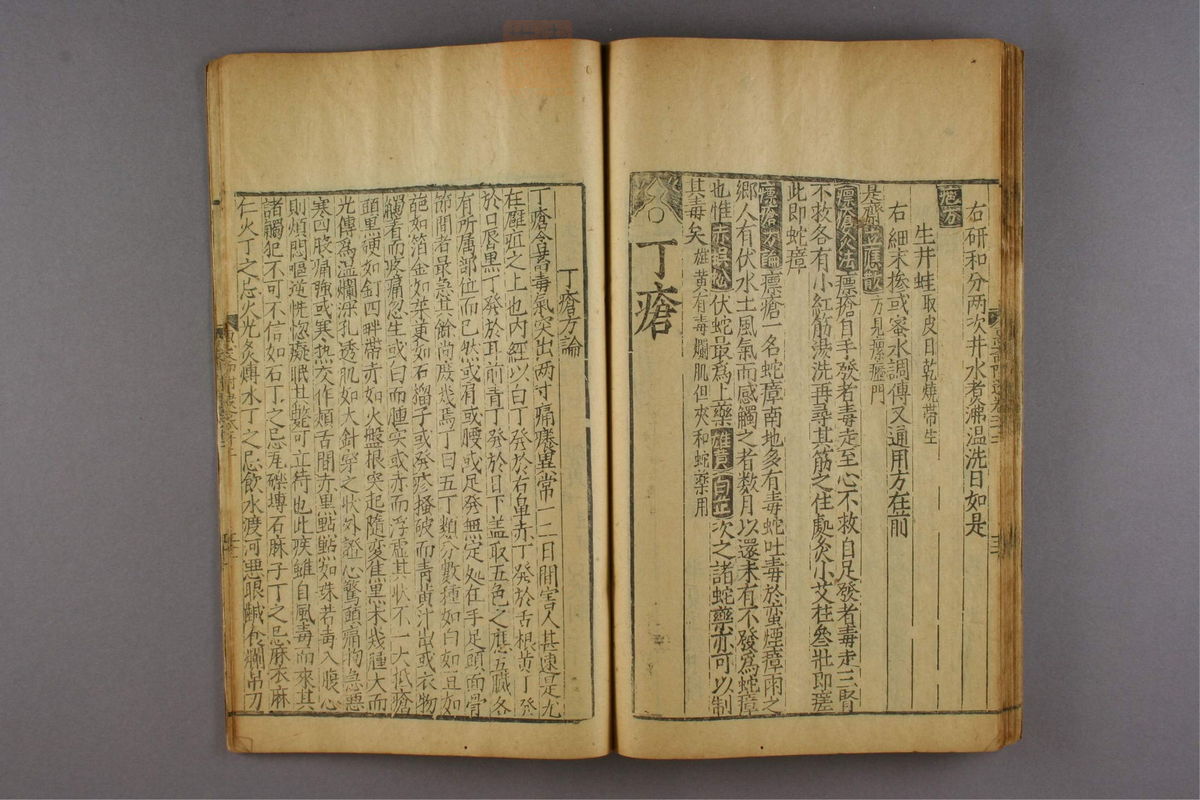 右研和分两次井水煮沸温洗日如是
疤方
生井蛙取皮日乾燒带生
右細末掺或蜜水調傅又通用方在前
是齋立應散方見瘰癧門
瘭瘡灸法瘭瘡自手發者毒走至心不救自足發者毒走三腎
不救各有小紅筋湯洗再尋其筋之住處灸小艾柱叁壯即瘥
此即蛇瘴
瘭瘡方論瘭瘡一名蛇瘴南地多有毒蛇吐毒於蛮煙瘴雨之
鄉人有伏水土風氣而感觸之者数月以還未有不發為蛇瘴
也惟赤蜈蚣伏蛇最為上藥雄黄白芷次之諸蛇藥亦可以制
其毒矣雄黄有毒爛肌但夾和蛇藥用
丁瘡
丁瘡方論
丁瘡含蓄毒氣突出两寸痛癢異常一二日間害人甚速是尤
在癰疽之上也内經以白丁發於右鼻赤丁發於舌根黄丁發
於口唇黒丁發於耳前青丁發於目下盖取五色之應五臟各
有所屬部位而已然或肩或腰或足發無定处在手足頭面骨
節間者最急其餘尚庶幾焉丁曰五丁類分數種如白如豆如
葩如箔金如茱萸如石榴子或發疹搔破而青黄汁出或衣物
觸着而疼痛忽生或白而腫实或赤而浮虚其状不一大抵瘡
頭黒硬如釘四畔帶赤如火盤根突起隨变焦黒未幾腫大而
光傳為温爛深孔透肌如大針穿之状外證心驚頭痛拘急惡
寒四肢痛強或寒热交作頰舌間赤黒點點如珠若毒入腹心
則煩悶嘔逆恍惚癡眠其斃可立待也此疾雖自風毒而來其
諸觸犯不可不信如石丁之忌瓦礫塼石麻子丁之忌麻衣麻
仁火丁之忌火光灸煿水丁之忌飲水渡河惡眼鹹衣爛帛刀